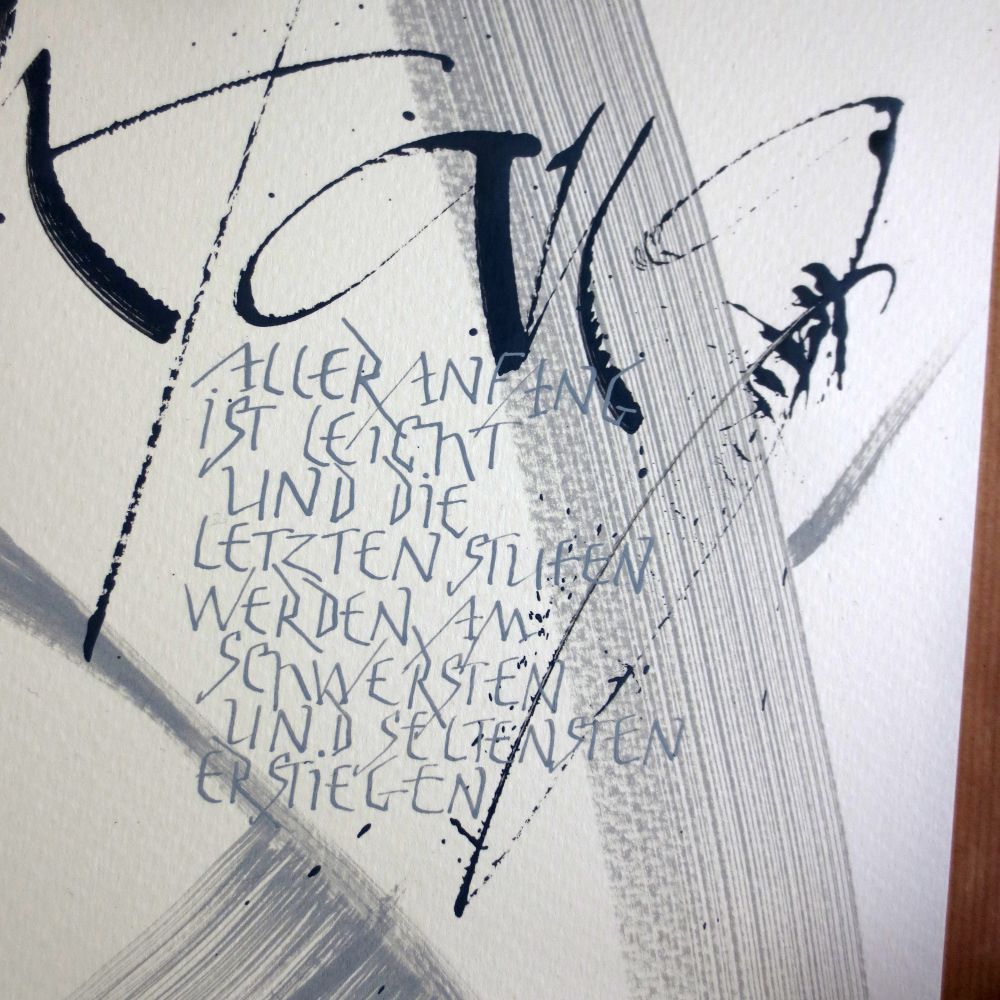 ALLER ANFANG
IST LEICHT
UND DIE
LETZTEN STUFEN
WERDEN AM
SCHWERSTEN
UND SELTENSTEN
ERSTIEGEN